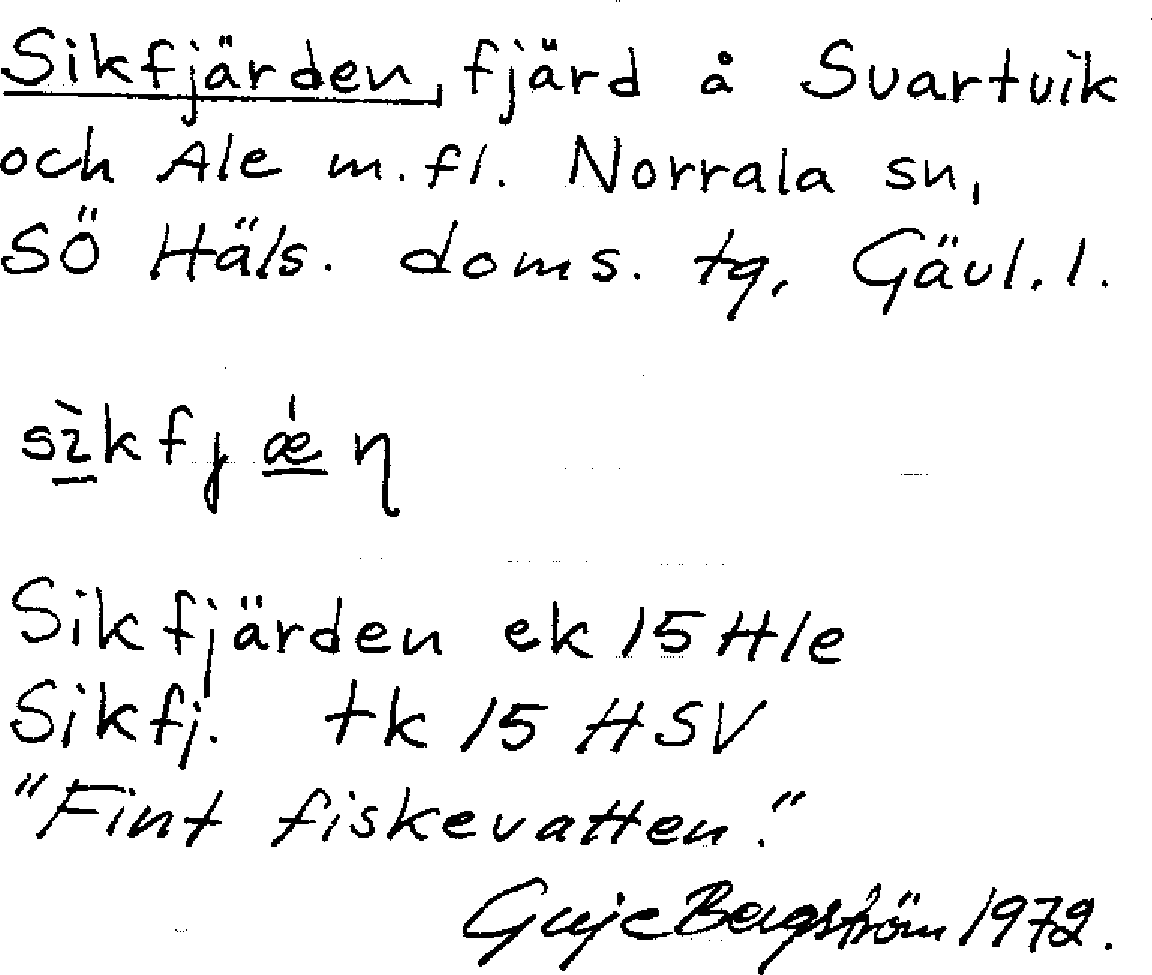 Sikfjärden, fjärd å Svartvik
och Ale m.fl. Norrala sn,
SÖ Häls. doms. tg, Gävl.l.
sìkfjǽn
Sikfjärden ek 15 H1e
Sikfj. tk 15 HSV
"Fint fiskevatten."
Guje Bergström 1972.